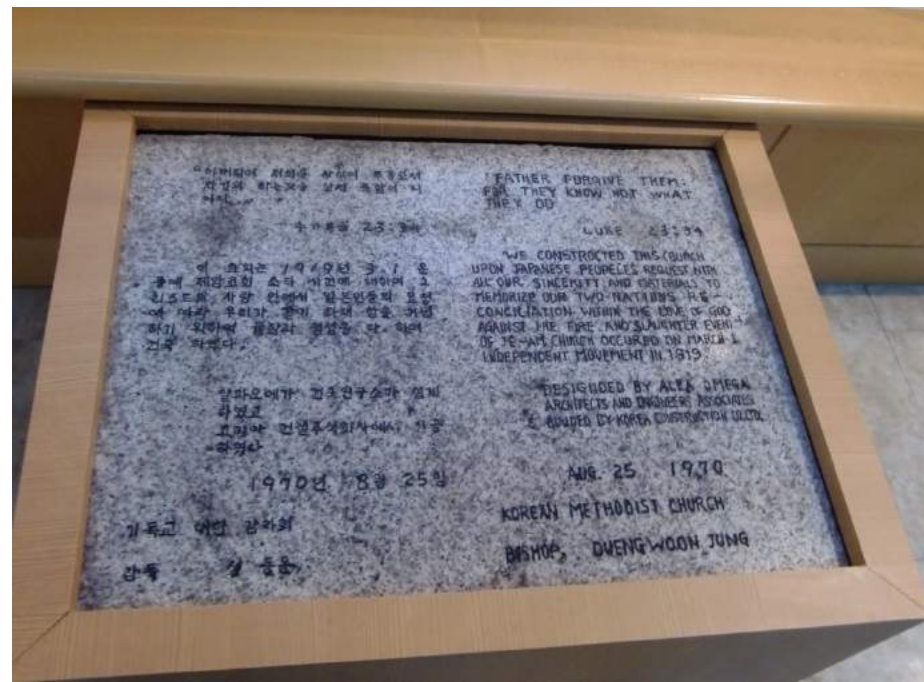 "아버지여 저희를 사하여 주옵소서
자기의 하는것을 알지 못함이니
누가복음 23:34
이 교회는 1919년 3.1 운
동때 제암교회 사건에 대하여 그
리스도의 사랑 안에서 일본인들의 요청
에 따라 우리가 화해 함을 기념
하기 위하여 물질과 정성을 다 하여
건축 하였다.
알파오메가 건축연구소가 설계
하였고
건설주식회사에서 시공
하였다
1970년 8월 25일
기독교 대한 감리회
감독
"FATHER FURGIVE THEM:
FOR THEY KNOW NOT WHAT
THEY DO
LUKE 23:34
"WE CONSTRUCTED THIS CHURCH
UPON JAPANESE PEOPELES REQUEST WITH
ALL OUR SINCERITY AND MATERIALS TO
MEMORIZE OUR TWO-NATIONS RE-
CONCILIATION WITHIN THE LOVE OF GOD
AGAINST THE FIRE AND SLAUGHTER EVENT
OF JE-AM CHURCH OCCURED ON MARCH 1
INDEPENDENT MOVEMENT IN 1919.
DESIGNDED BY ALFA OMEGA
ARCHITECTS AND ENGINEERS ASSOCIATES
& BOUDED BY KOREA CONSTRUCTION CO. LTD.
AUG. 25 1970
KOREAN METHODIST CHURCH
BISHOP, DUENGWOON JUNG